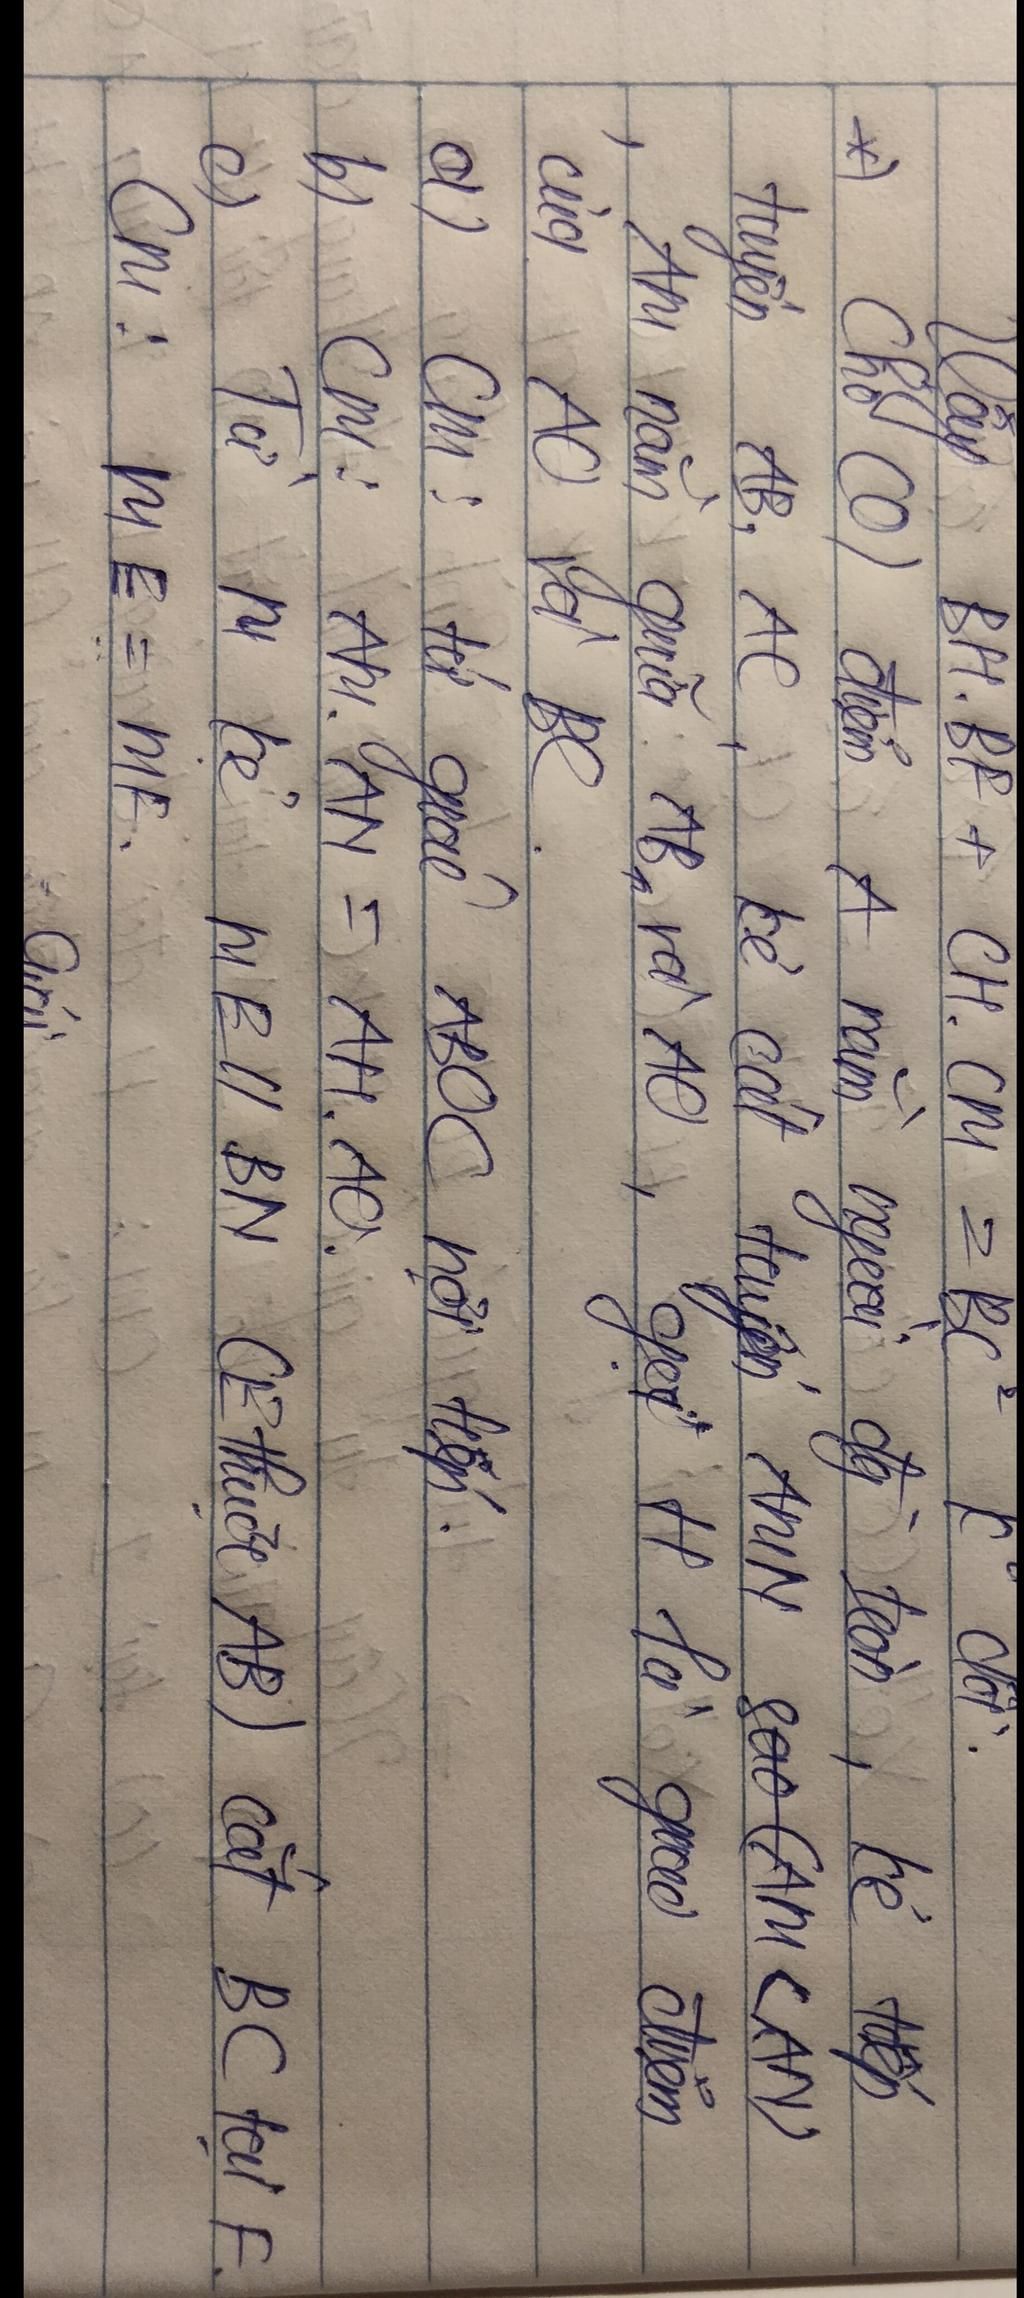 Vậy BH.BE + CH.CM = BC² k° đổi.
*) Cho (O) điểm A nằm ngoài đg tròn, kẻ tiếp
tuyến AB, AC, kẻ cát tuyến AMN sao (AM < AN)
, AM nằm giữa AB, và AO, gọi H là giao điểm
của AO và BC.
a) Cm: tứ giác ABOC nội tiếp.
b) Cm: AM.AN = AH.AO.
c) Từ M kẻ ME // BN (E thuộc AB) cắt BC tại F.
Cm: ME = MF.
Giải